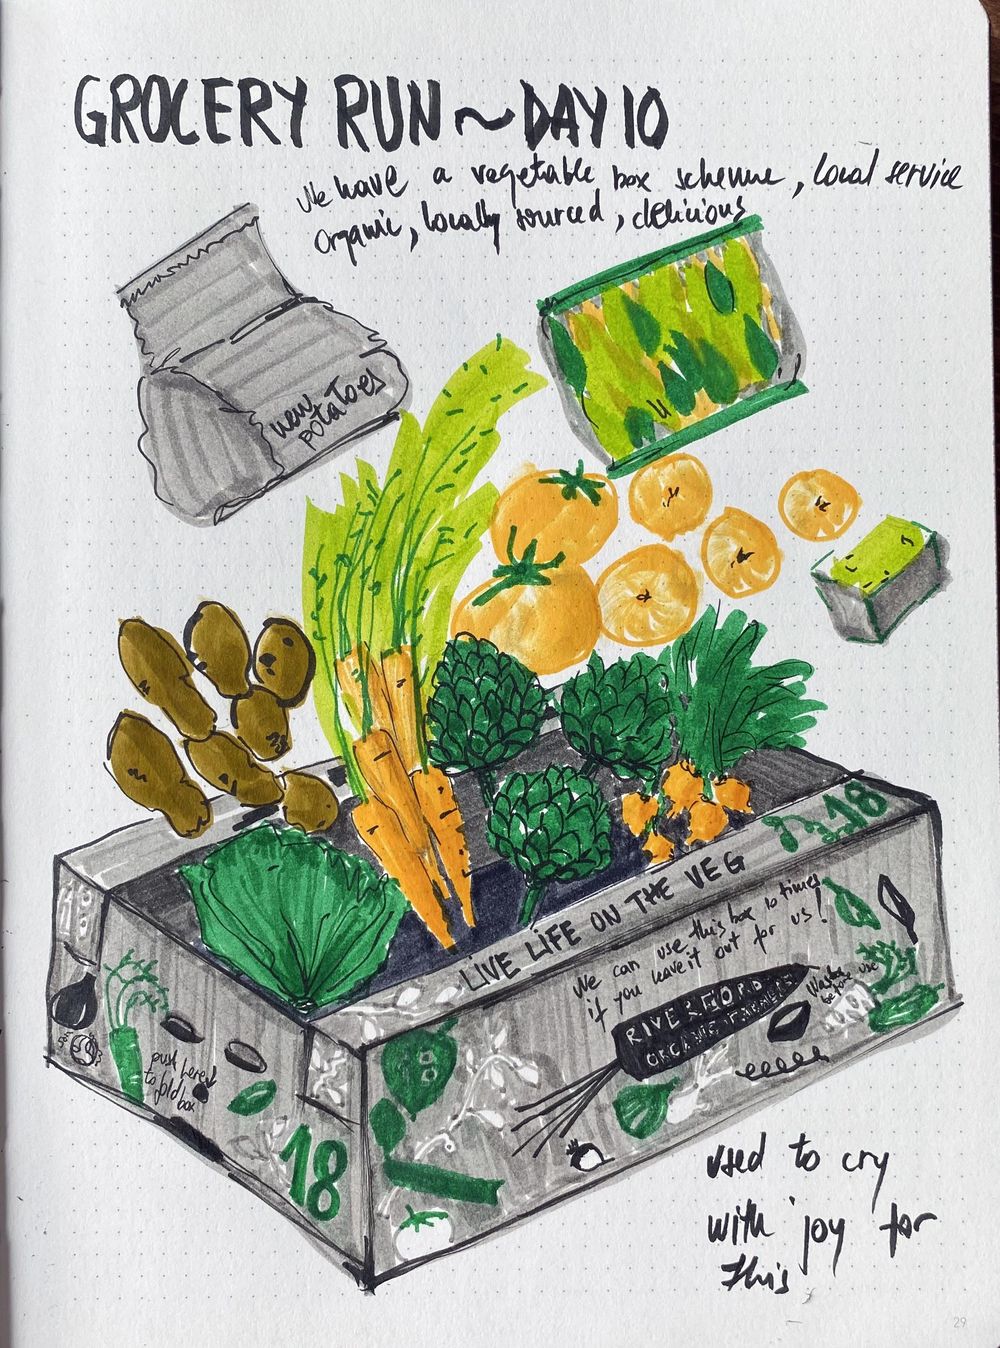 GROCERY RUN ~ DAY 10
We have a vegetable box scheme, local service
organic, locally sourced, delicious
new
potatoes
18
LIVE LIFE ON THE VEG
We can use this box 10 times
if you leave it out for us!
RIVERFORD
ORGANIC FARMERS
Wash
before use
push here
to fold
box
18
used to cry
with joy for
this
29